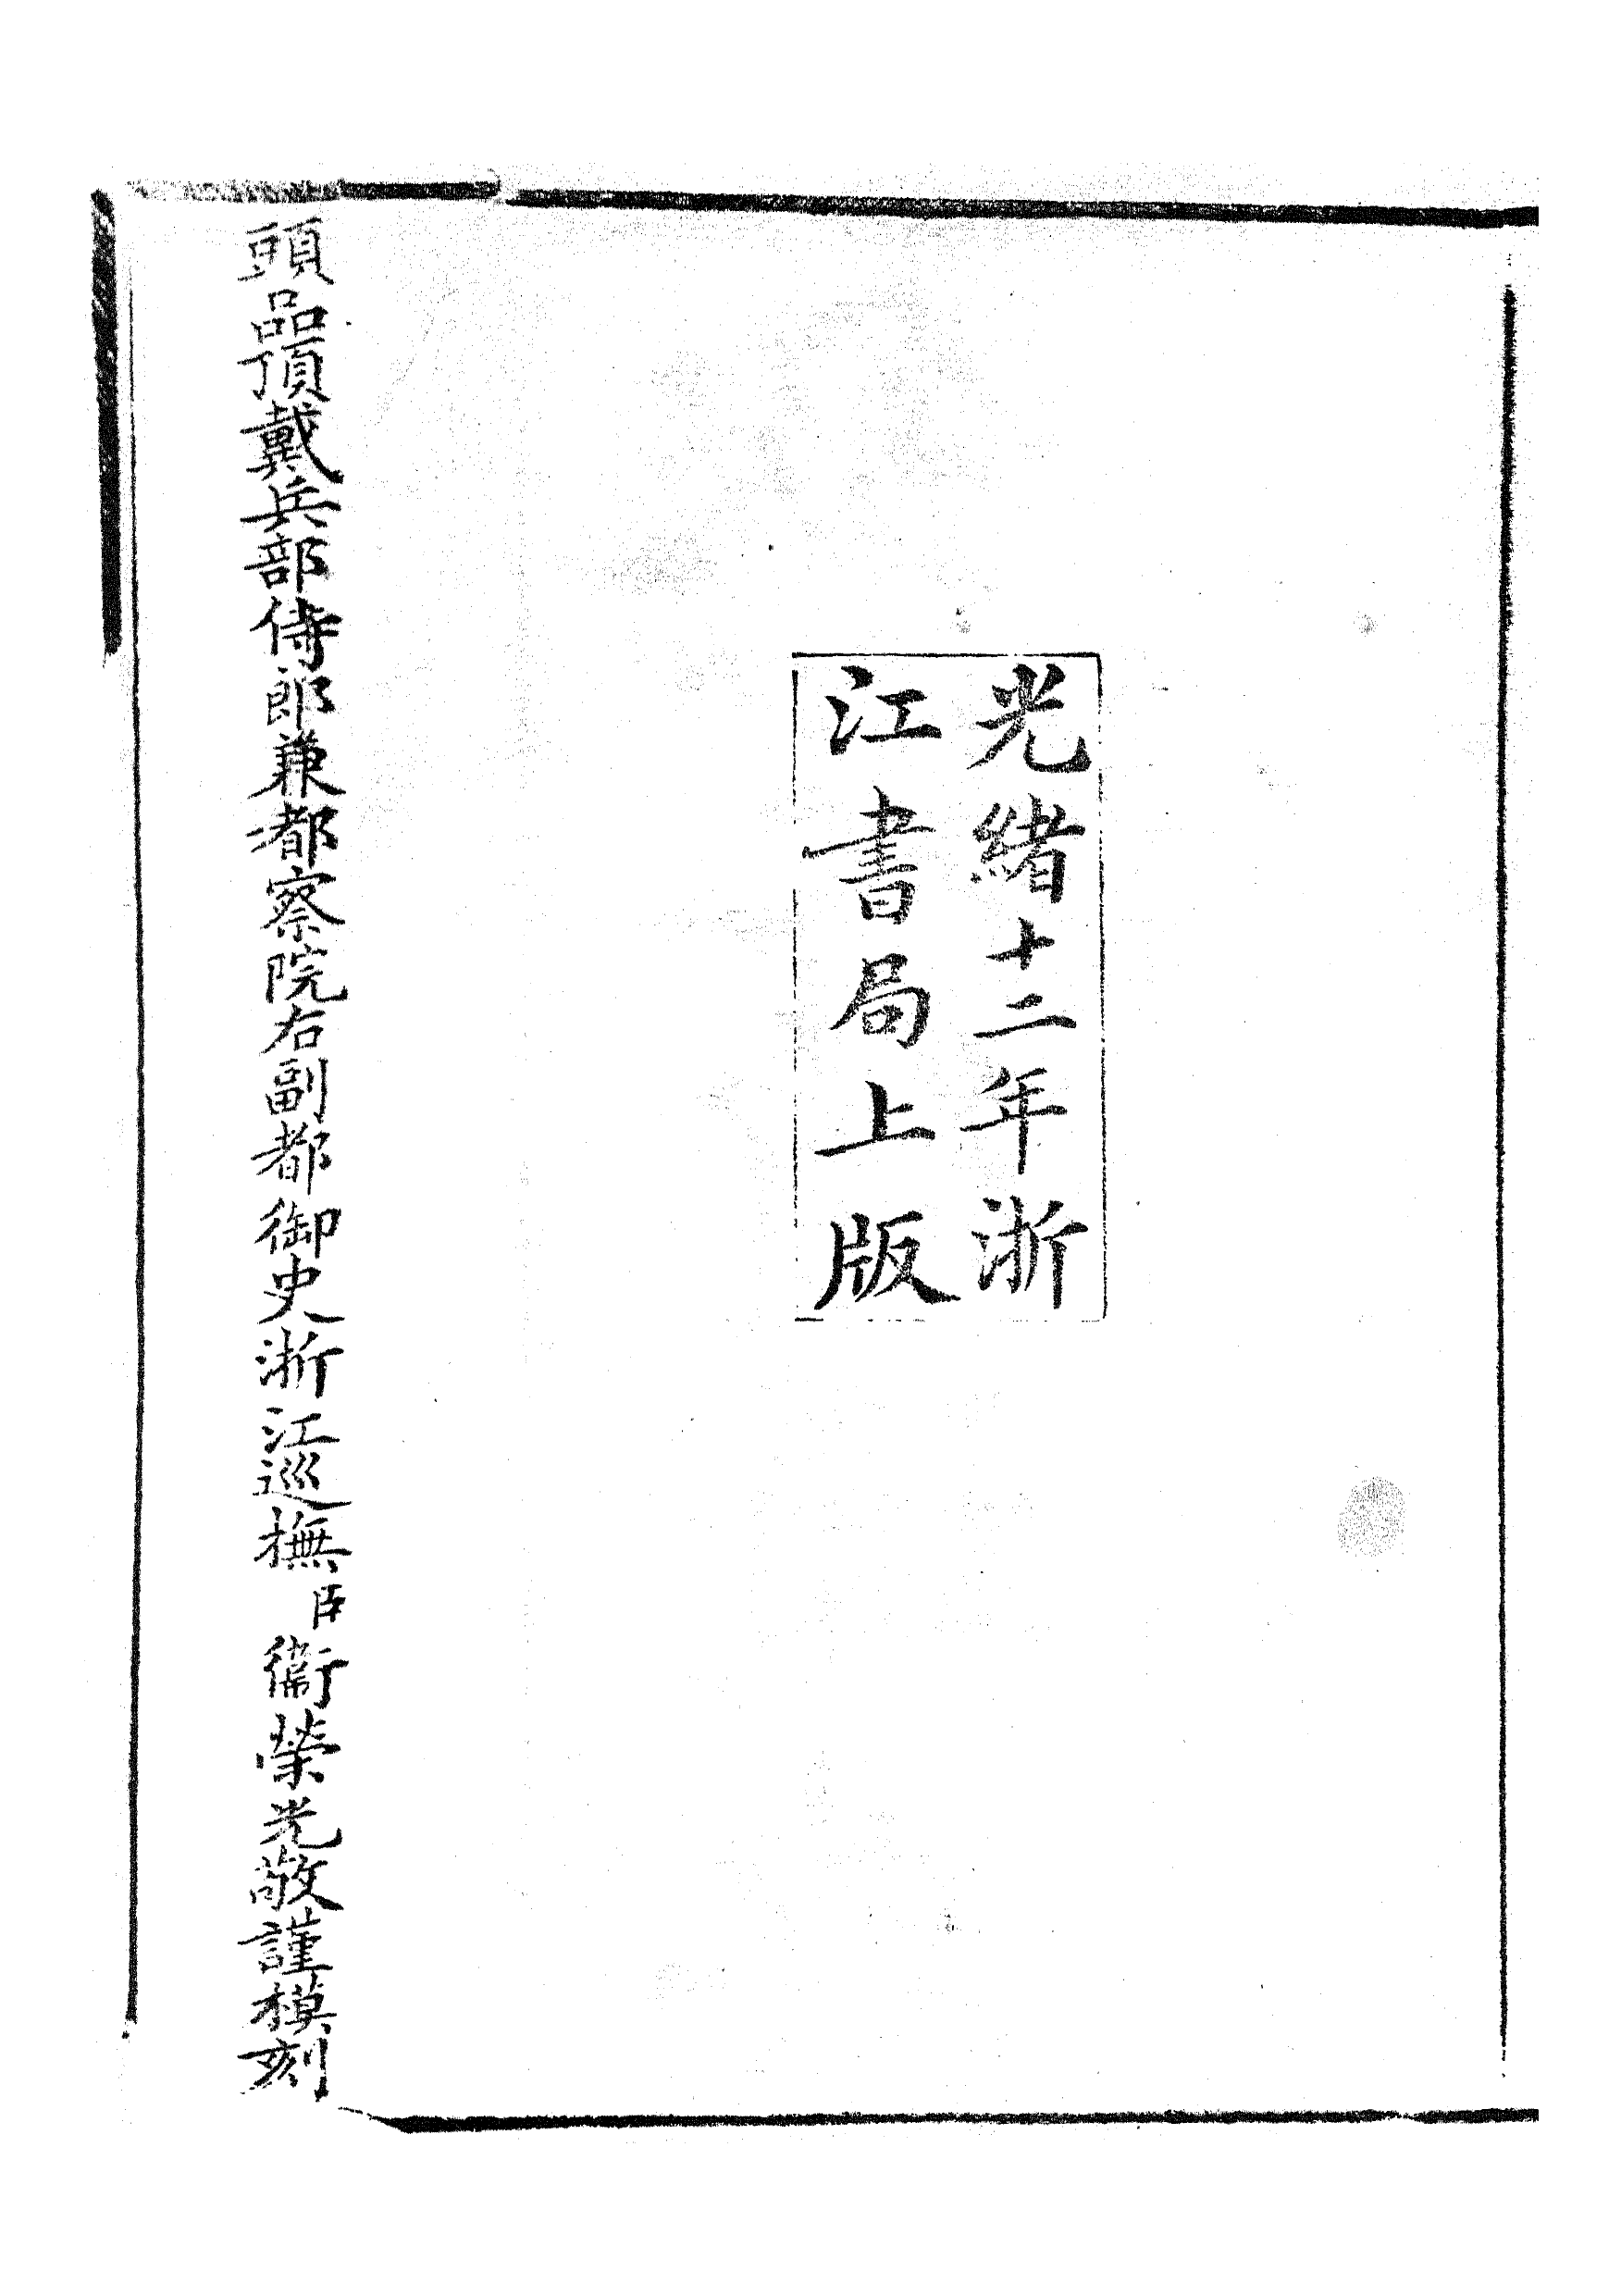 光緒十二年浙
江書局上版
頭品頂戴兵部侍郎兼都察院右副都御史浙江巡撫臣衞榮光敬謹模刻